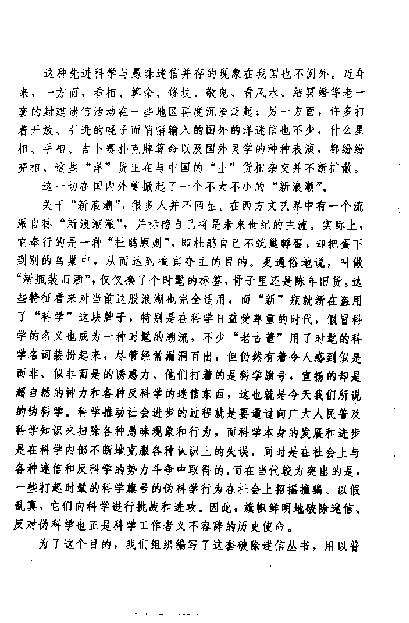 这种先进科学与愚昧迷信并存的现象在我国也不例外。近年
来，一方面，看相、算命、修坟、敬鬼、看风水、结冥婚等老一
套的封建迷信活动在一些地区再度沉渣泛起；另一方面，许多打
着开放、引进的幌子而悄悄输入的国外的洋迷信也不少，什么星
相、手相、吉卜赛扑克牌算命以及国外灵学的种种表演，都纷纷
亮相，这些“洋”货正在与中国的“土”货相杂交并不断扩散。
这一切在国内外要掀起了一个不大不小的“新浪潮”。
关于“新浪潮”，很多人并不陌生。在西方文艺界中有一个流
派自称“新浪潮派”，并标榜自己将是未来世纪的主流。实际上，
它奉行的是一种“杜鹃原则”，即杜鹃自己不筑巢孵蛋，却把蛋下
到别的鸟巢中，从而达到夺主的目的。更通俗地说，叫做
“新瓶装旧酒”，仅仅换了个时髦的标签，骨子里还是陈年旧货。这
些特征看来对当前这股浪潮也完全适用，而“新”就新在盗用
了“科学”这块牌子，特别是在科学日益受尊重的时代，假冒科
学的名义也成为一种时髦的潮流，不少“老古董”用了时髦的科
学名词装扮起来，尽管经常漏洞百出，但仍然有着令人感到似是
而非、似非而是的诱惑力。他们打着的是科学旗号，宣扬的却是
超自然的神力和各种反科学的迷信东西，这也就是今天我们所说
的伪科学。科学推动社会进步的过程就是要通过向广大人民普及
科学知识来扫除各种愚昧现象和行为，而科学本身的发展和进步
是在科学内部不断地克服各种认识上的失误，同时是在社会上与
各种迷信和反科学的势力斗争中取得的。而在当代较为突出的是，
一些打起时髦的科学旗号的伪科学行为在社会上招摇撞骗、以假
乱真，它们向科学进行挑战和进攻。因此，旗帜鲜明地破除迷信、
反对伪科学也正是科学工作者义不容辞的历史使命。
为了这个目的，我们组织编写了这套破除迷信丛书，用以普